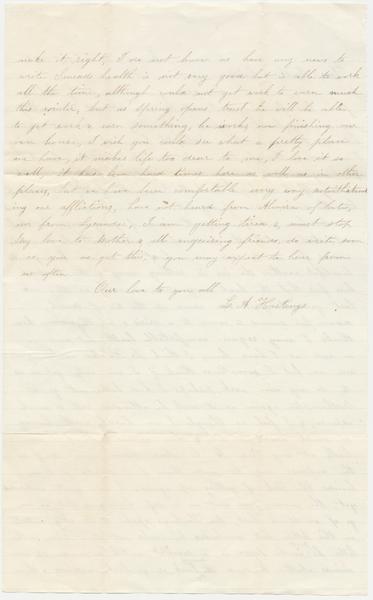 make it right, I do not know as have any news to
write health is not very good but is able to work
all the time, although could not get work to earn much
this winter, but as spring opens, trust he will be able
to get work & earn something, he works now finishing our
own house, I wish you could see what a pretty place
we have, it makes life too dear to me, I love it so
well, it has been hard times here as well as in other
places, but we have been comfortable every way notwithstand
ing our afflictions, have not heard from Almira of late,
nor from I am getting tired & must stop
my love to Mother & all enquiring friends, do write soon
as you get this, & you may expect to hear from
us often
Our love to you all
L. A. Hastings